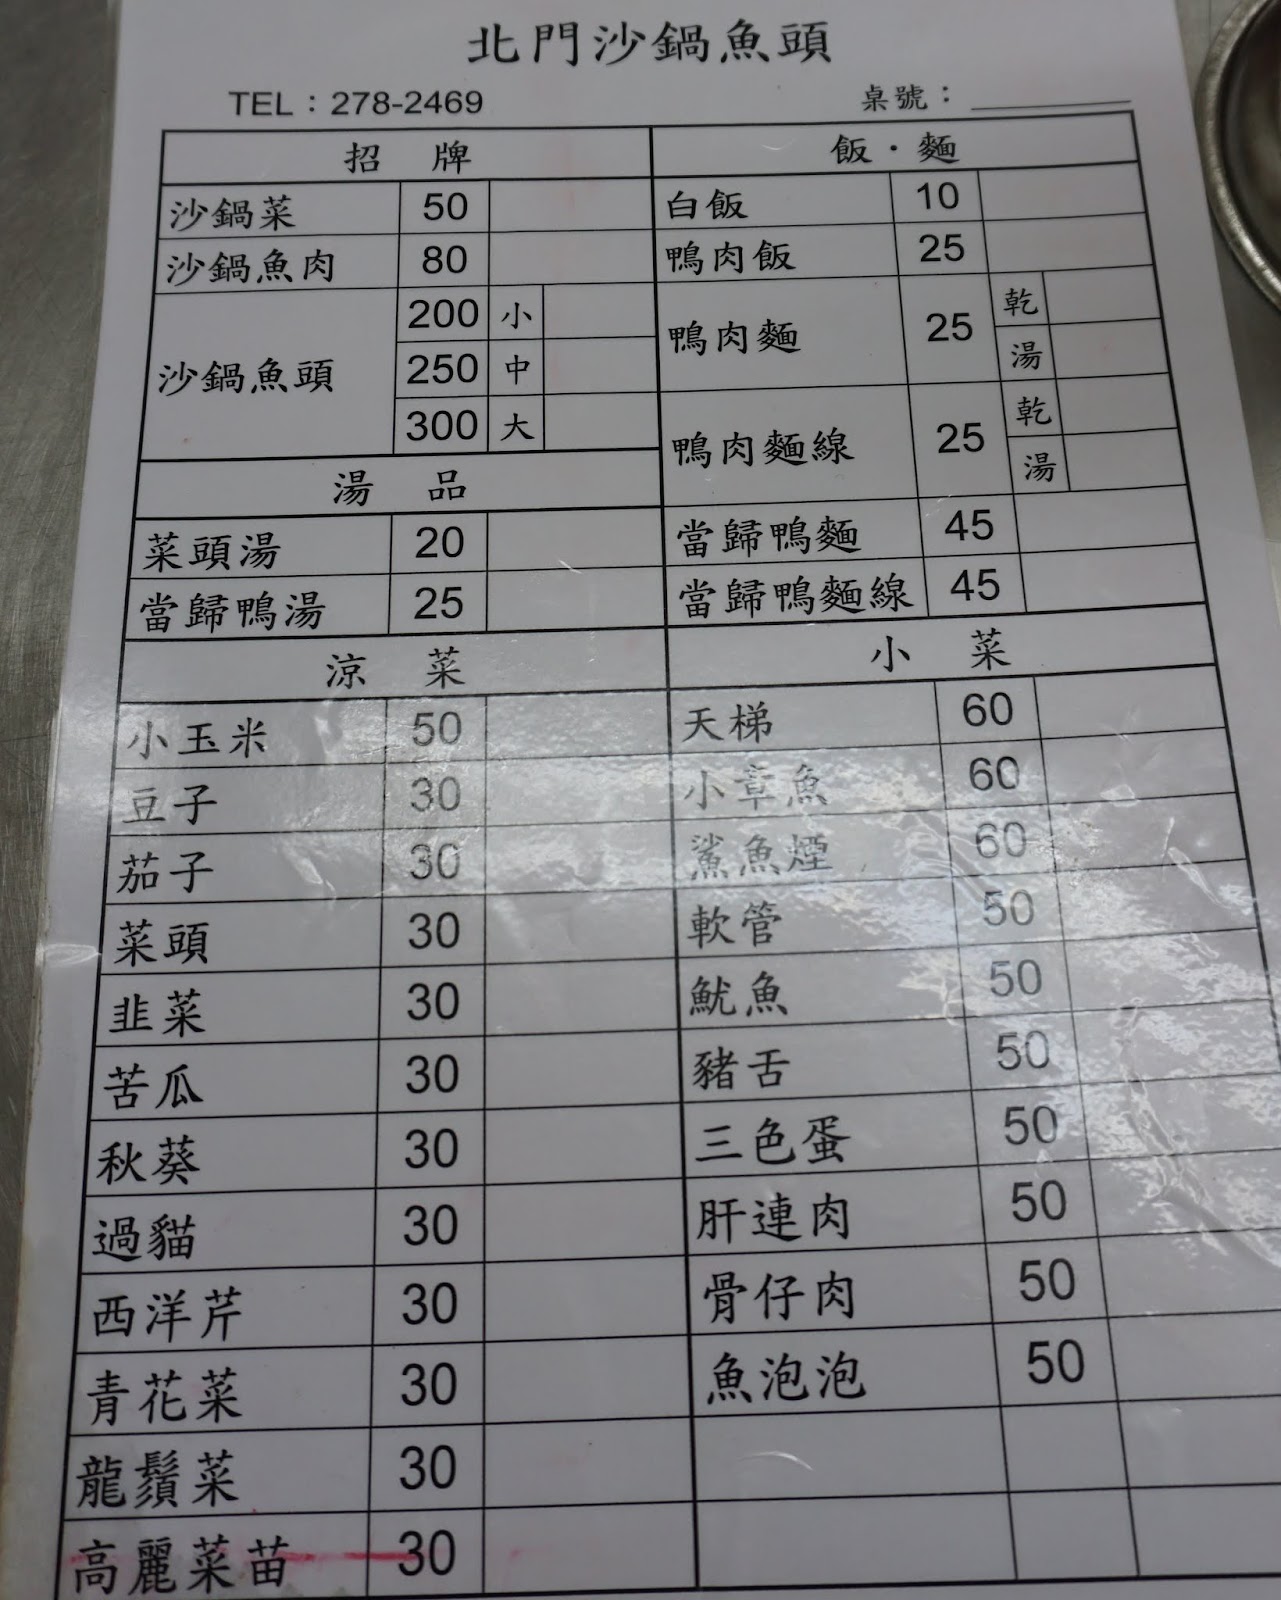 北門沙鍋魚頭
TEL：278-2469 桌號：
招 牌
沙鍋菜 50
沙鍋魚肉 80
沙鍋魚頭
200 小
250 中
300 大
湯 品
菜頭湯 20
當歸鴨湯 25
涼 菜
小玉米 50
豆子 30
茄子 30
菜頭 30
韭菜 30
苦瓜 30
秋葵 30
過貓 30
西洋芹 30
青花菜 30
龍鬚菜 30
高麗菜苗 30
飯·麵
白飯 10
鴨肉飯 25
鴨肉麵 25
乾
湯
鴨肉麵線 25
乾
湯
當歸鴨麵 45
當歸鴨麵線 45
小 菜
天梯 60
小章魚 60
鯊魚煙 60
軟管 50
魷魚 50
豬舌 50
三色蛋 50
肝連肉 50
骨仔肉 50
魚泡泡 50